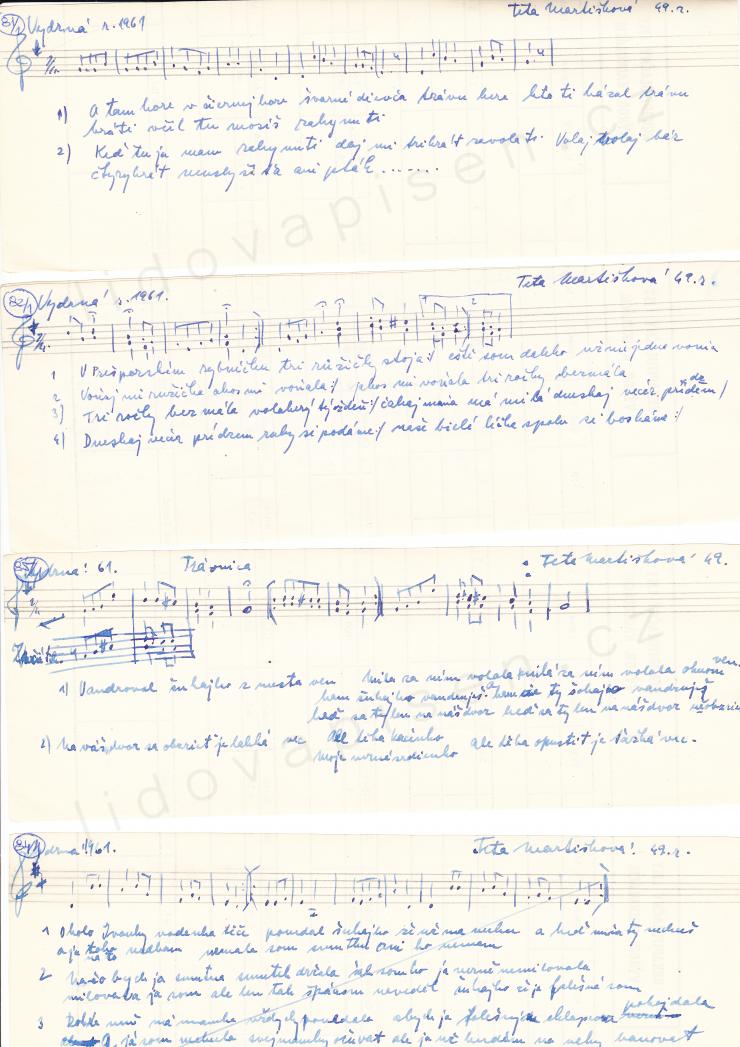 81/1 Vydrná r. 1961 Teta Martišková 49.r.
1) A tam hore v čiernej hore švarné dievča trávu kere kto ti kázal trávu
tráti včil tu mosíš zahynuti
2) Keď tu ja mam zahynuti daj mi trikrát zavolati. Volaj volaj bár
štyrykrát neuslyší ťa ani pták.......
82/1 Vydrná r. 1961. Teta Martišková 49.r.
1 V Prešporském rybníčku tri růžičky stoja:/ ešti som daleko už mi jedna vonia
2 Voňaj mi ružička ako si mi voňala:/ jakos mi voňala tri ročky bezmála
3) Tri ročky bezmála volakerý týždeň:/ čakaj mňa má milá dneskaj večer prídem:/
4) Dneskaj večer prídzem ruky si podáme:/ naše bielé líčka spolu si boskáme:/
Vydrná! 61. Trávnica Teta Martišková 49.
1) Vandroval šuhajko z mesta ven milá za ním volala milá za ním volala oknom ven.
kam šuhajko vandruješ kam sa ty šuhajko vandruješ
keď sa ty len na náš dvor keď sa ty len na náš dvor neobzrieš
2) Na váš dvor sa obzrieť je lehká vec ale teba
moje verné srdienko ale teba opustit je ťažká vec.
84/1 Vydrná! 1961. Teta Martišková! 49.r.
1 Okolo Ivanky vodenka tiče povedal šuhajko že ně ma nechce a keď mňa ty nechceš
a ja na to nedbám nemala som smutku ani ho nemám
2 Načo bych ja smutna smutek držala šak som ho ja verně nemilovala
milovala ja som ale len tak špásom neveděl šuhajko že ja falešná som
3 Kolde mně má mamka vždycky povedala abych ja falešnym chlapcom pokoj dala
A já som nechcela svej mamky očúvat ale ja už budem na veky banovat